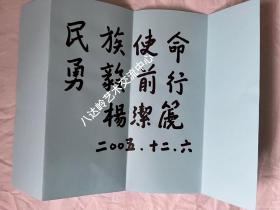 民族使命
勇毅前行
楊潔篪
二００五.十二.六
八达岭艺术交流中心